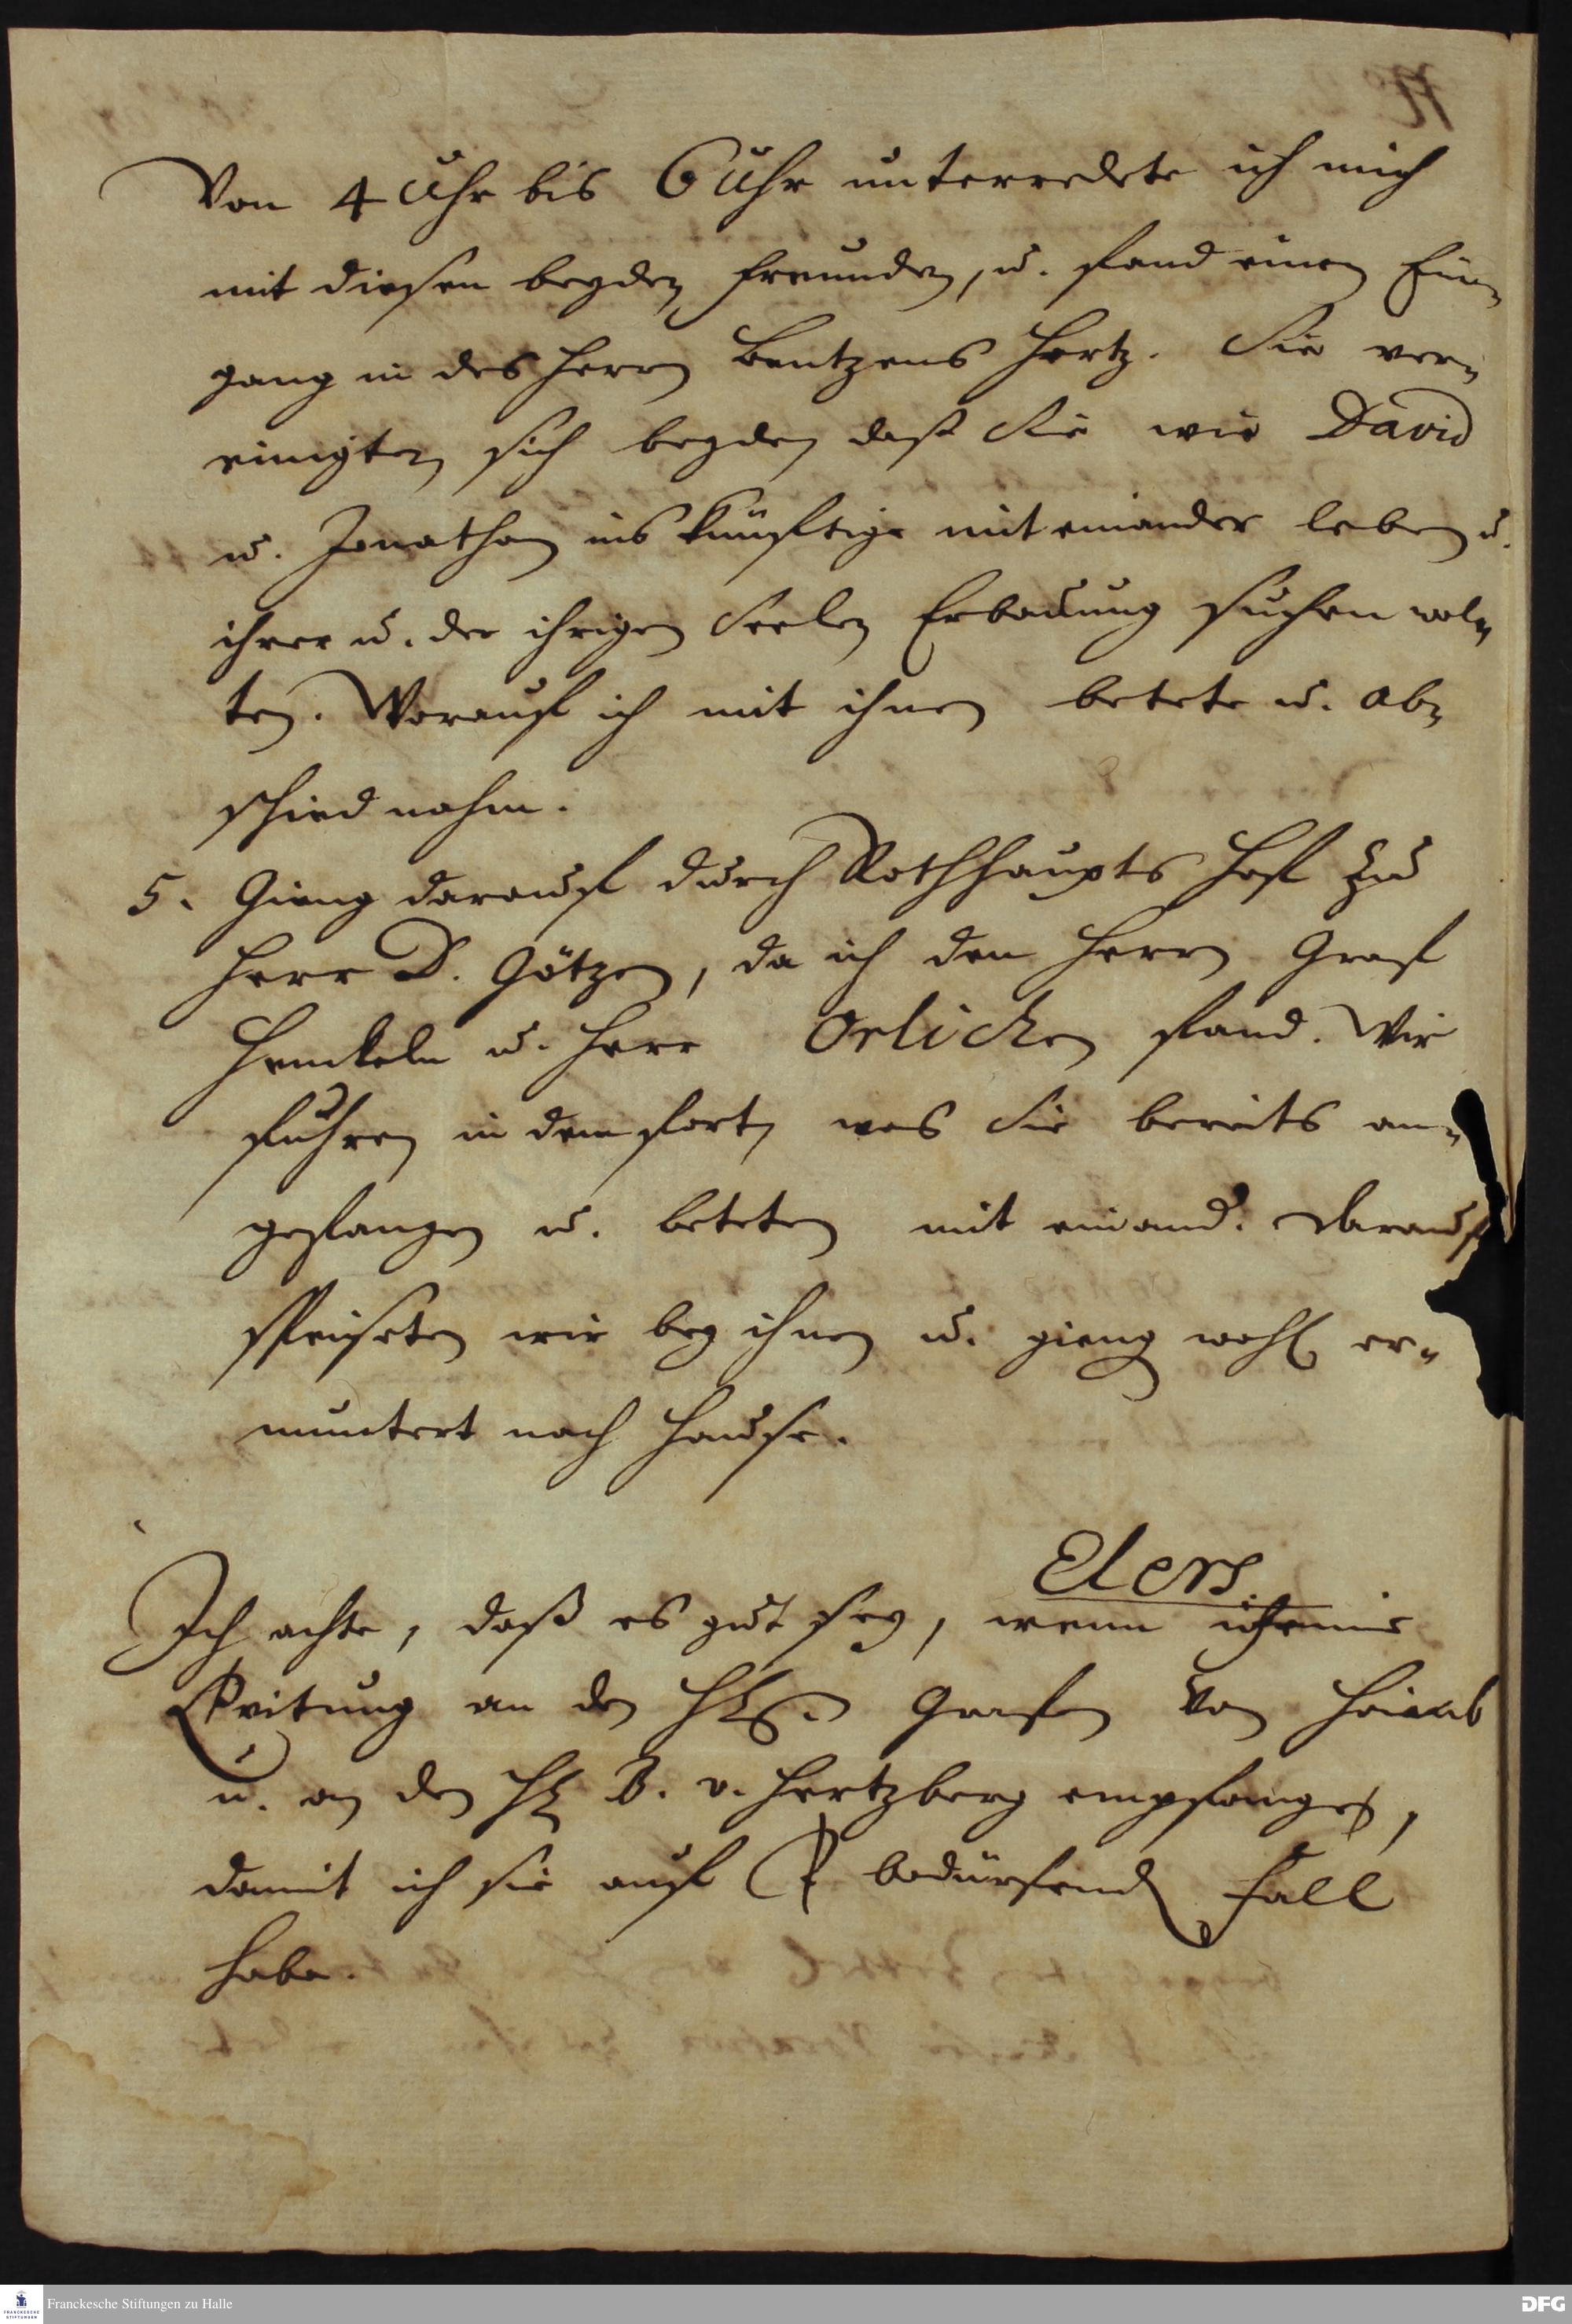 Von 4 Uhr bis 6 Uhr unterredete ich mich
mit diesen beyden freunden, u. fand einen Ein-
gang in des Herrn Bentzens Hertz. Sie ver-
einigten sich beyden daß Sie wie David
u. Jonathan ins künfftige mit einander leben u.
ihrer u. der ihrigen Seelen Erbauung suchen wol-
ten. Worauf ich mit ihnen betete u. ab-
schied nahm.
5. Gieng darauf durch Rothhaupts Hof zu
Herr D. Götzen, da ich den Herrn Graf
Henckeln u. Herr Orlichen fand. Wir
fuhren in dem fort, was Sie bereits an-
gefangen u. beteten mit einand. Darauf
Speiseten wir bey ihnen u. gieng wohl er-
muntert nach Hause.
Elers.
Ich achte, daß es gut sey, wenn
an den Grafen von
u. an den B. v. Hertzberg empfange,
damit ich sie auf bedürfend Fall
habe.
Franckesche Stiftungen zu Halle
DFG